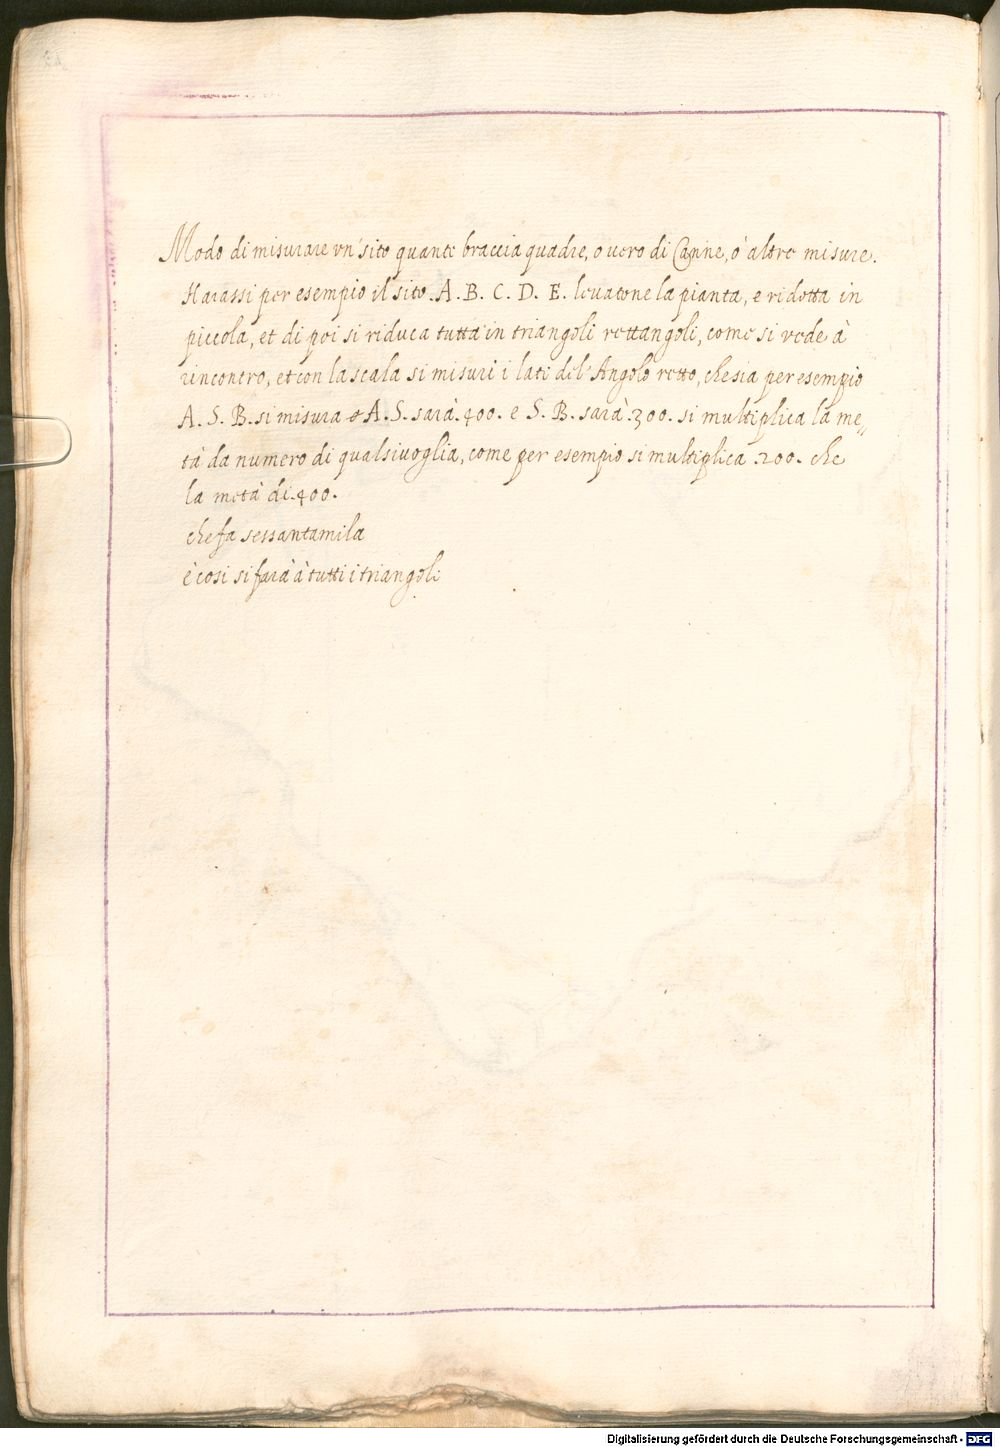 Modo di misurare vn' sito quante braccia quadre, o uero di Canne, ò altre misure.
Harassi per esempio il sito. A. B. C. D. E. leuatone la pianta, e ridotta in
piccola, et di poi si riduca tutta in triangoli rettangoli, come si vede à
rincontro, et con la scala si misuri i lati dell' Angolo retto, che sia per esempio
A. S. B. si misura e A. S. sarà. 400. e S. B. sarà. 300. si multiplica la me„
tà da numero di qualsiuoglia, come per esempio si multiplica. 200. che
la metà di. 400.
che fa sessantamila
è cosi si farà à tutti i triangoli
Digitalisierung gefördert durch die Deutsche Forschungsgemeinschaft - DFG